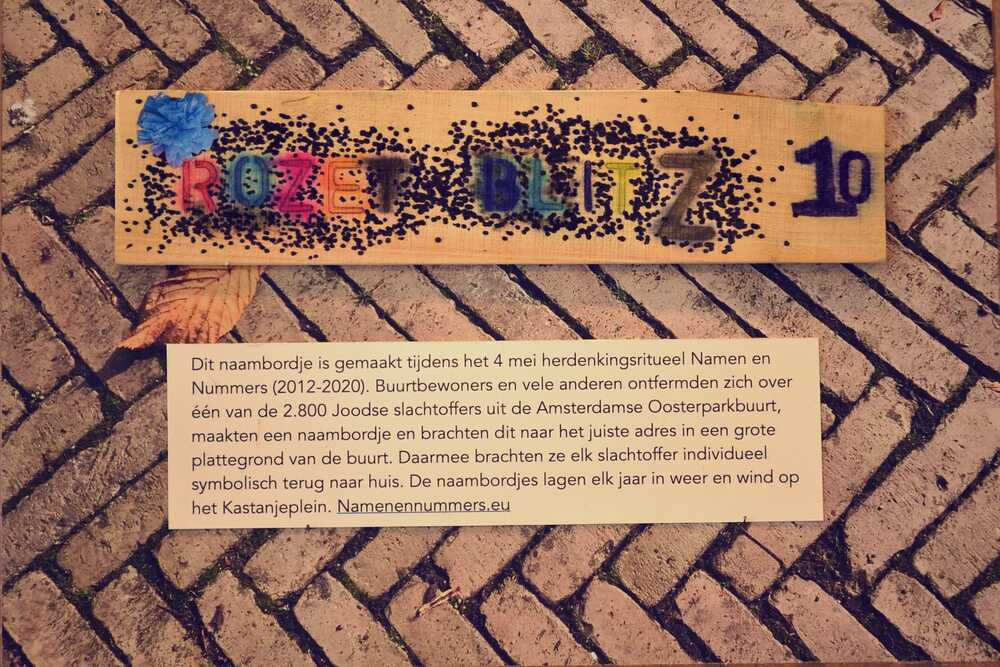 ROZET BLITZ 10
Dit naambordje is gemaakt tijdens het 4 mei herdenkingsritueel Namen en
Nummers (2012-2020). Buurtbewoners en vele anderen ontfermden zich over
één van de 2.800 Joodse slachtoffers uit de Amsterdamse Oosterparkbuurt,
maakten een naambordje en brachten dit naar het juiste adres in een grote
plattegrond van de buurt. Daarmee brachten ze elk slachtoffer individueel
symbolisch terug naar huis. De naambordjes lagen elk jaar in weer en wind op
het Kastanjeplein. Namenennummers.eu